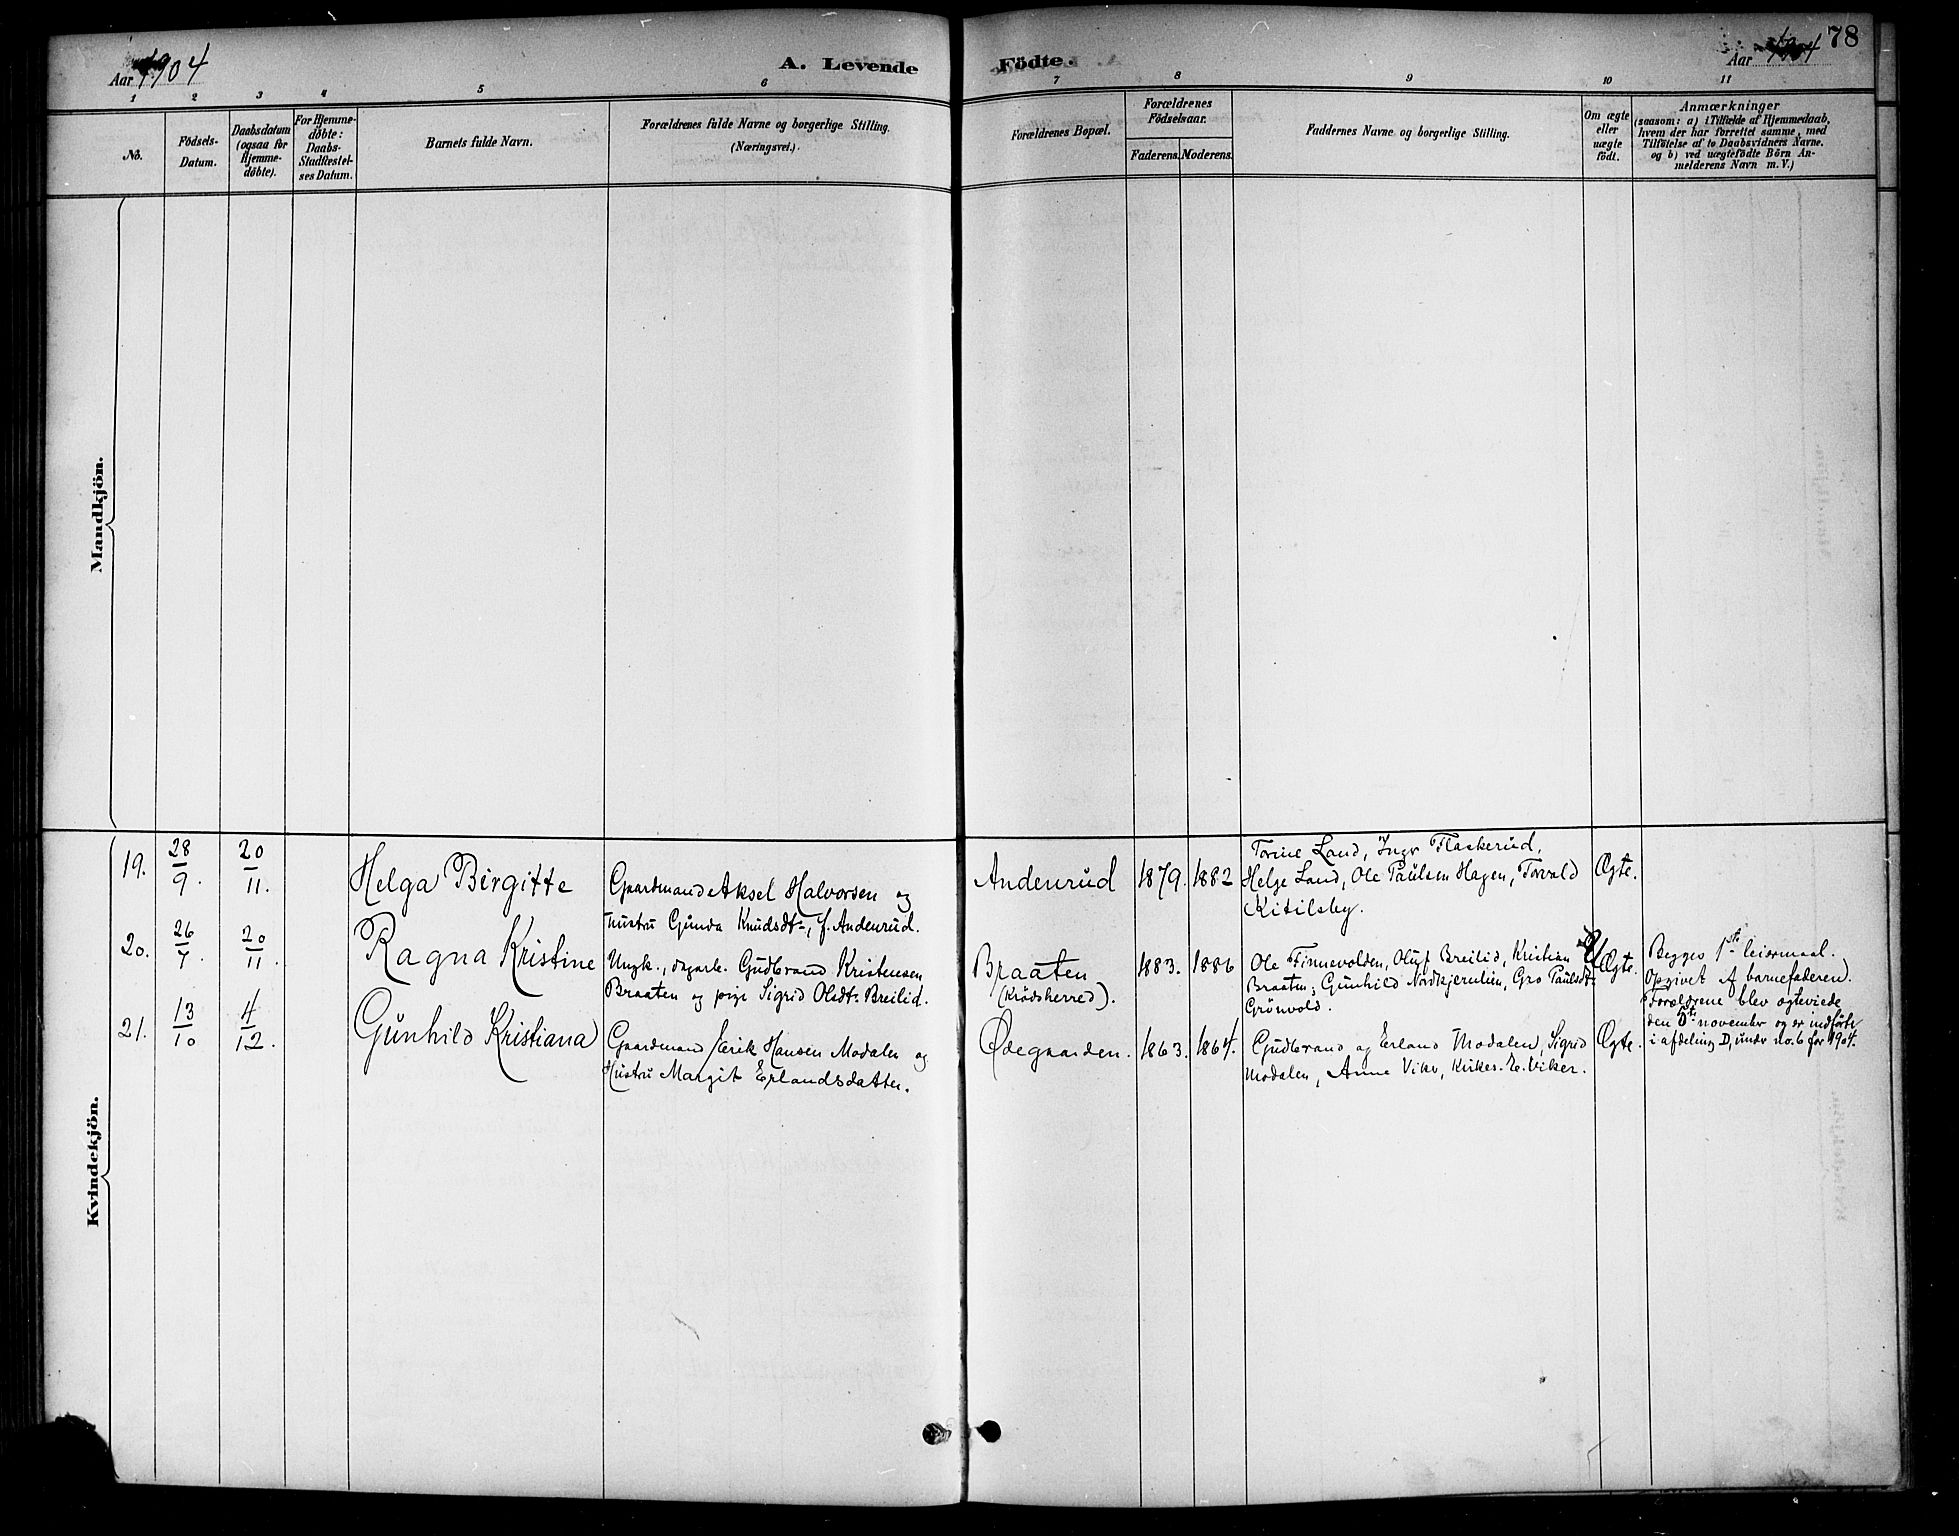 Aar 1904
A. Levende
Födte.
Aar 1904
78
1 2 3 4 5 6 7 8 9 10 11
No.
Födsels-
Datum.
Daabsdatum
(ogsaa for
Hjemme-
döbte).
For Hjemme-
döbte:
Daabs-
Stadfæstel-
ses Datum.
Barnets fulde Navn.
Forældrenes fulde Navne og borgerlige Stilling.
(Næringsvei.)
Forældrenes Bopæl.
Forældrenes
Födselsaar.
Faderens. Moderens.
Faddernes Navne og borgerlige Stilling.
Om ægte
eller
uægte
födt.
Anmærkninger
(saasom: a) i Tilfælde af Hjemmedaab,
hvem der har forrettet samme, med
Tilföielse af to Daabsvidners Navne.
og b) ved uægtefödte Börn An-
melderens Navn m. V.)
Mandkjön.
Kvindekjön.
19. 28/9. 20/11. Helga Birgitte
Gaardmand Aksel Halvorsen og
hustru Gunda Knudsdt., f. Andenrud.
Andenrud 1879. 1882
Torine Land, Ingr Flaskerud,
Helge Land, Ole Paulsen Hagen, Torvald
Kitilsby.
Ægte.
20. 26/7. 20/11. Ragna Kristine
Ungk., dagarb. Gudbrand Kristensen
Braaten og pige Sigrid Olsdt. Breilid.
Braaten
(Krödsherred).
1883. 1886
Ole Finnevolden, Oluf Breilid, Kristian
Braaten; Gunhild Nordkjernlien, Gro Paulsdt.
Grönvold.
Uægte.
Begges 1ste leiermaal.
Opgivet af barnefaderen.
Forældrene blev ægteviede
den 5te november og er indförte
i afdeling D, under no. 6 for 1904.
21. 13/10 4/12. Gunhild Kristiana
Gaardmand Erik Hansen Modalen og
Hustru Margit Erlandsdatter.
Ødegaarden. 1863. 1864.
Gudbrand og Erland Modalen, Sigrid
Modalen, Anne Vikv, Kirkes. E. Viker.
Ægte.